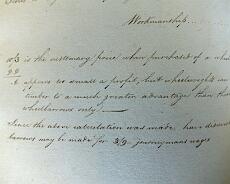 Workmanship
9/3 is the customary price when purchased of a wheel
It appears so small a profit, but wheelwrights can
timber to a much greater advantage than those
wheelbarrows only.
Since the above calculation was made have
barrows may be made for 3/9 journeymans wages